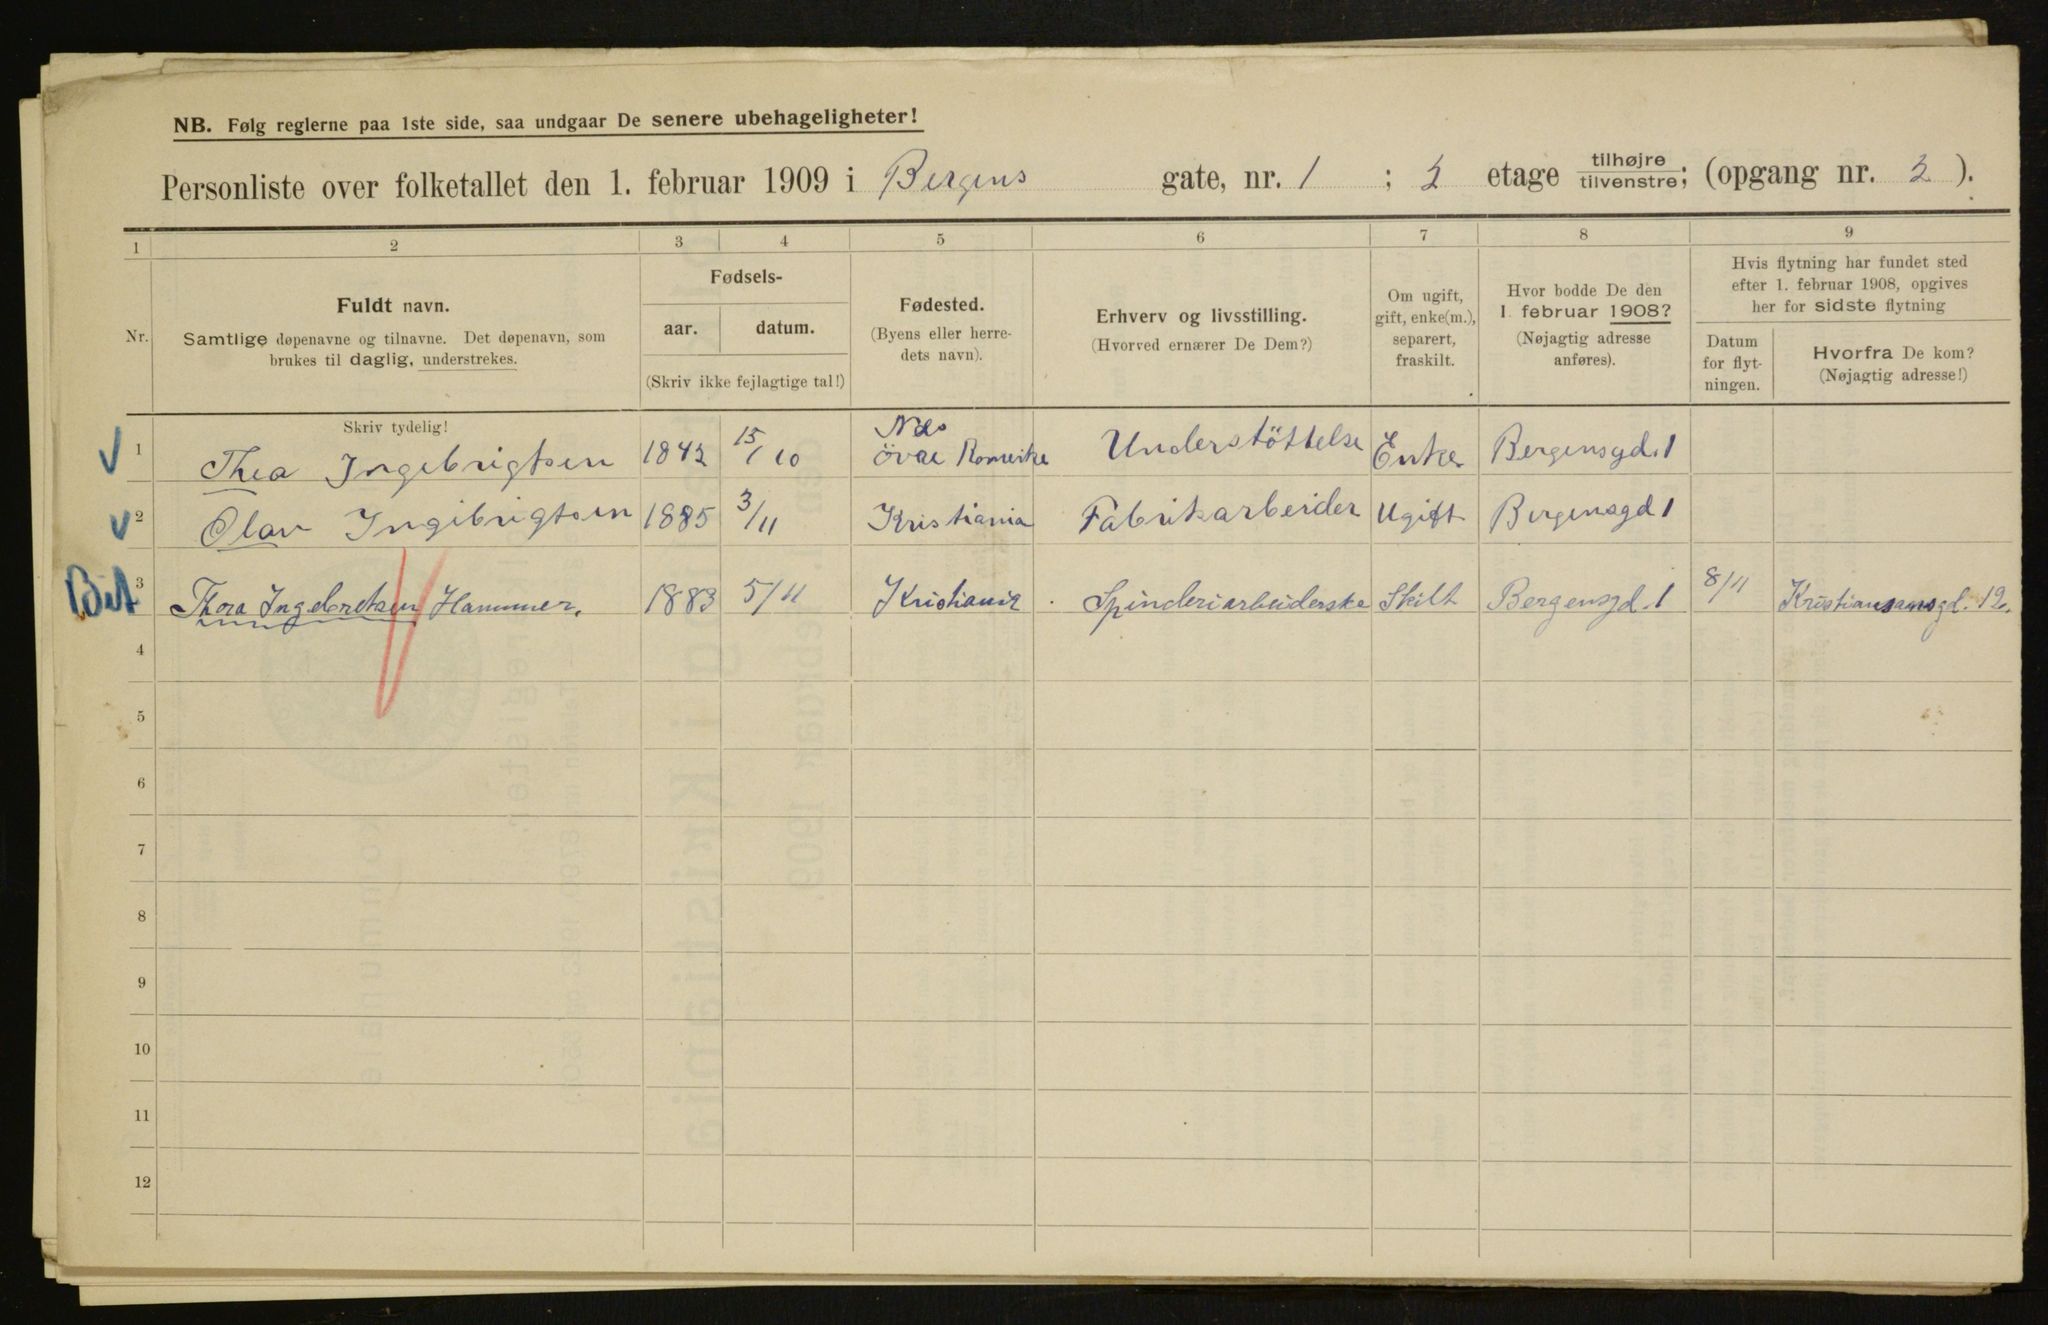 NB. Følg reglerne paa 1ste side, saa undgaar De senere ubehageligheter!
Personliste over folketallet den 1. februar 1909 i Bergens gate, nr. 1 ; 2 etage tilhøjre tilvenstre; (opgang nr. 2 ).
1 2 3 4 5 6 7 8 9
Nr.
Fuldt navn.
Samtlige døpenavne og tilnavne. Det døpenavn, som
brukes til daglig, understrekes.
Fødsels-
aar. datum.
(Skriv ikke fejlagtige tal!)
Fødested.
(Byens eller herre-
dets navn).
Erhverv og livsstilling.
(Hvorved ernærer De Dem?)
Om ugift,
gift, enke(m.),
separert,
fraskilt.
Hvor bodde De den
1. februar 1908?
(Nøjagtig adresse
anføres).
Hvis flytning har fundet sted
efter 1. februar 1908, opgives
her for sidste flytning
Datum
for flyt-
ningen.
Hvorfra De kom?
(Nøjagtig adresse!)
Skriv tydelig!
1 Thea Ingebrigtsen 1842 15/10 Nes Övre Romerike Understöttelse Enke Bergensgd. 1
2 Olav Ingebrigtsen 1885 3/11 Kristiania Fabrikarbeider Ugift Bergensgd 1
3 Thora Ingebretsen Hammer. 1883 5/11 Kristiania Spinderiarbeiderske Skilt Bergensgd. 1 8/11 Kristiansansgd. 12.
4
5
6
7
8
9
10
11
12